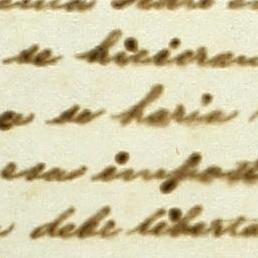 se hicieran
se haria
esa impos
debe liberta